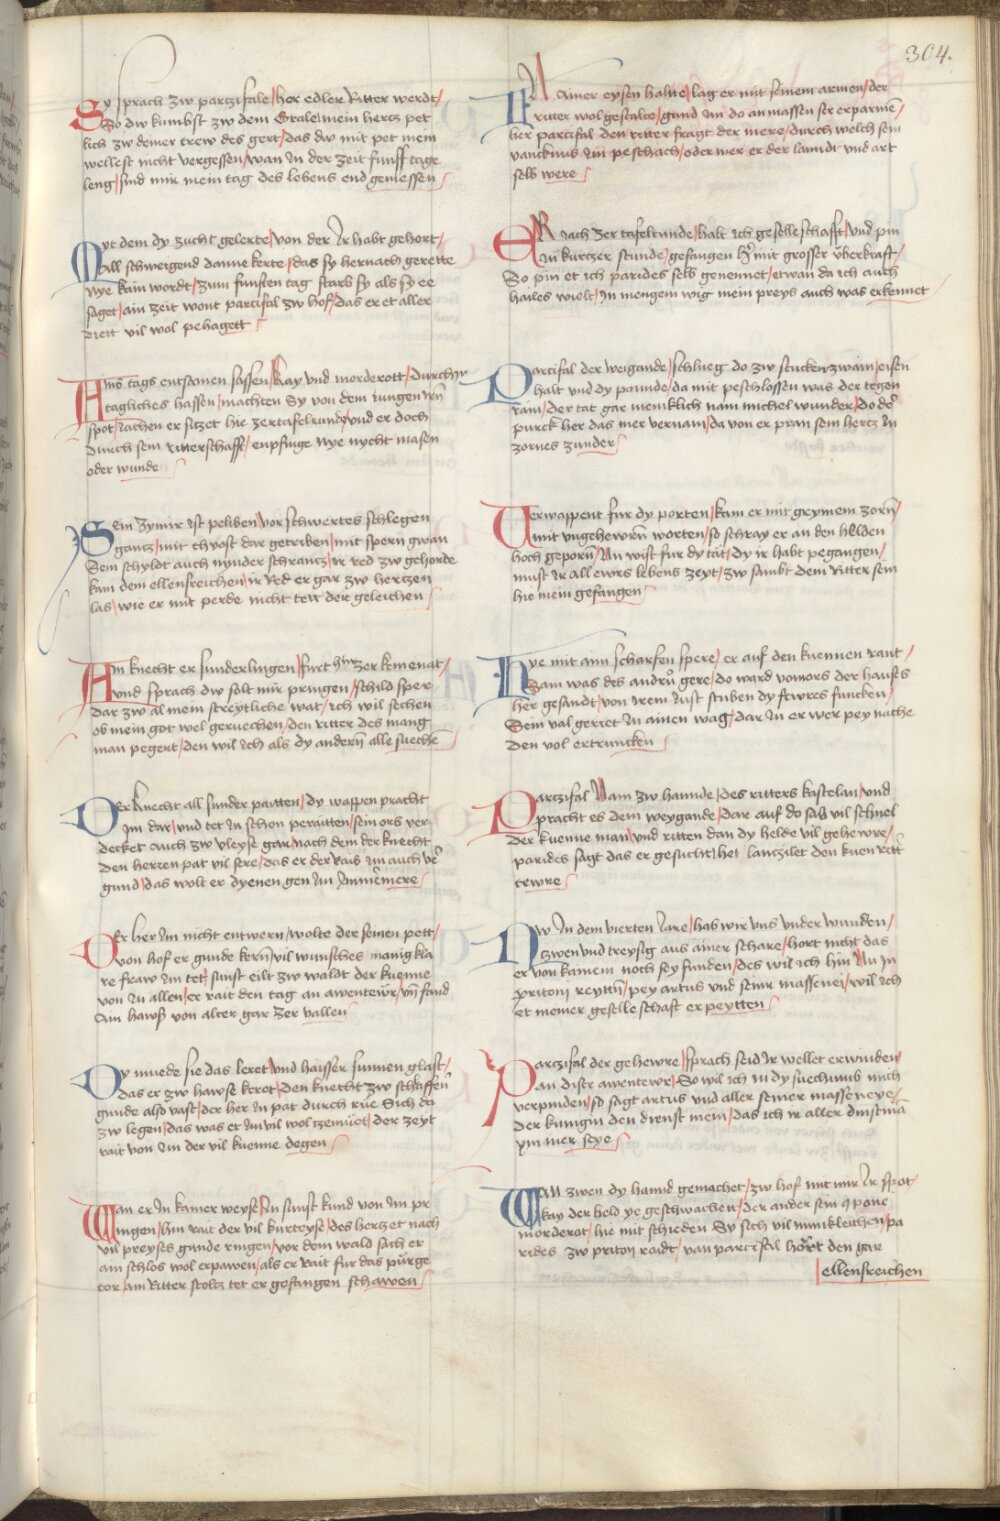 304.
Sy sprach zw partzifale / her edler Ritter werdt /
So dw kumbst zw dem Grale / mein hertz pet
lich zw deiner trew des gert / das dw mit pet mein
wellest nicht vergessen / wan in der zeit funff tage
leng / sind mir mein tag des lebens end gemessen /
Myt dem dy zucht gelerte / von der Ir habt gehort /
all schweigend danne kerte / das sy hernach gerette
nye kain wordt / zum funften tag starb sy als sy ee
saget / ain zeit wont partifal zw hof / das er et aller
diett vil wol pehagett /
Ains tags entsamen sassen / Kay vnd morderott / durch Ir
tagliches hassen / machten Sy von dem iungen
spot / sachen er sitzet hie zertafelrund / vnd er doch
durch sein ritterschafft / enpfinge nye nycht masen
oder wunde
Sein zymir ist peliben / vor schwertes schlegen
gantz / mit thyost dar getriben / mit spern gwan
Sein schyldt auch nynder schrantz / ir red zw gehorde
kam dem ellensreichen / ir Red er gar zw hertzen
las / wie er mit perde nicht tett der geleichen /
Ain knecht er sunderlingen / furt hin zer kemenat /
vnd sprach dw solt mir pringen / schild sper
dar zw al mein streytliche wat / ich wil sechen
ob mein got wel geruechen / den ritter des mang
man pegert / den wil ich als dy andern alle suechen
Der knecht all sunder paitten / dy wappen pracht
Im dar / vnd tet in schon peraitten / sein ors ver
decket auch zw vleyse gar / nach dem der knecht
den herren pat vil sere / das er der rais im auch ver
gund / das wolt er dyenen gen im ymmermere /
Der her Im nicht entwern / wolte der seinen pett /
von hof er gunde kern / vil wunsches manig kla
re fraw im tet / sunst eilt zw waldt der kuenne
von in allen / er rait den tag an awentewr / vnd fand
ain hawss von alter gar zer vallen
Dy muede sie das leret / vnd haisser sunnen glast /
das er zw hawse keret / den knecht zw schaffen
gunde also vast / der her in pat durch rue Sich da
zw legen / das was et im vil wol zemuet / der zeyt
rait von im der vil kuenne degen /
Wan er in kainer weyse / In sunst kund von im pr
ingen / hin rait der vil kurteyse / des hertz et nach
vil preyses gunde ringen / vor dem wald sach er
ain schlos wol erpawen / als er rait fur das purge
tor / ain Ritter stoltz tet er gefangen schawen /
In ainer eysen haltte / lag er mit seinem armen / der
ritter wol gestalte / gund in do an massen ser erparmen /
her partifal den ritter fragt der mere / durch welch sein
vancknus im peschach / oder wer er der lanndt vnd art
selb were /
ER iach zer tafelrunde / halt ich geselleschafft / vnd pin
in kurtzer stunde / gefangen hie mit grosser vberkraft /
So pin et ich parides selb genennet / etwan da ich auch
hailes wielt / in mengem wig mein preys auch was erkennet
Partifal der weigande / schlueg do zw stucken zwain / eisen
halt vnd dy pannde / da mit peschlossen was der tegen
rain / der tat gar menicklich nam michel wunder / do der
purck her das mer vernam / da von er pran sein hertz in
zornes zunder /
Verwappent fur dy porten / kam er mit grymem zorn /
mit vngehewrn worten / so schray er an den helden
hoch geporn / Nu wist fur dy tat / dy ir habt pegangen /
must ir all ewrs lebens zeyt / zw sambt dem Ritter sein
hie mein gefangen /
Hye mit aim scharfen spere / er auf den kuennen rant /
Sam was des andern gere / do ward vom ors der hauses
her gesandt / von irem iust stuben dy fewres funcken /
Sein val geriet in ainen wag / dar in er wer pey nache
den vol ertruncken /
Partzifal Nam zw hannde / des ritters kastelan / vnd
pracht es dem weygande / dar auf do sass vil schnel
der kuenne man / vnd ritten dan dy helde vil gehewre /
parides sagt das er gesucht het lantzilet den kuen ritter
tewre /
Nw in dem vierten iare / hab wir vns vnder wunden /
zwen vnd treysig aus ainer schare / hort nicht das
er von kainem noch sey funden / des wil ich hin Nu in
pritoni reyttn / pey artus vnd seinr massenei / wil ich
et meiner geselleschaft erpeytten /
Partzifal der gehewre / sprach seid ir wellet erwinden /
an diser awentewr / So wil ich in dy suechund mich
verpinden / so sagt artus vnd aller seiner masseneye /
der kunigin den dienst mein / das ich ir aller dinstman
ymmer seye /
Wan zwen dy hannd gemachet / zw hof mit mir ir spot /
kay der held ye geschwachett / der ander sein cpone
morderot / hie mit schieden Sy sich vil minikleichen / pa
rides zw priton raidt / van partifal hort den gar
ellensreichen